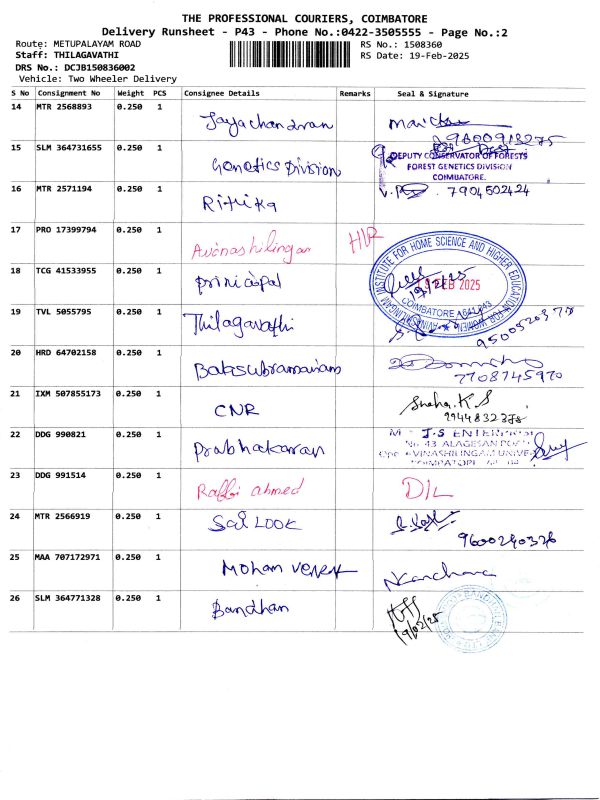 THE PROFESSIONAL COURIERS, COIMBATORE
Delivery Runsheet - P43 - Phone No.:0422-3505555 - Page No.:2
Route: METUPALAYAM ROAD RS No.: 1508360
Staff: THILAGAVATHI RS Date: 19-Feb-2025
DRS No.: DCJB150836002
Vehicle: Two Wheeler Delivery
S No Consignment No Weight PCS Consignee Details Remarks Seal & Signature
14 MTR 2568893 0.250 1 Jayachandran
9600913275
15 SLM 364731655 0.250 1 Genetics Division
DEPUTY CONSERVATOR OF FORESTS
FOREST GENETICS DIVISION
COIMBATORE.
16 MTR 2571194 0.250 1 Rithika 7904502424
17 PRO 17399794 0.250 1 Avinashilingam
INSTITUTE FOR HOME SCIENCE AND HIGHER EDUCATION FOR WOMEN AVINASHILINGAM
COIMBATORE 641 043
FEB 2025
18 TCG 41533955 0.250 1 principal
19 TVL 5055795 0.250 1 Thilagavathi
20 HRD 64702158 0.250 1 Balasubramaniam
7708745970
21 IXM 507855173 0.250 1 CNR Sneha.K.S
22 DDG 990821 0.250 1 Prabhakaran
J.S ENTERPRISE
23 DDG 991514 0.250 1 Raffi ahmed D/L
24 MTR 2566919 0.250 1 Sai LOOK
9600240328
25 MAA 707172971 0.250 1 Mohan
26 SLM 364771328 0.250 1 Bandhan
19/02/25